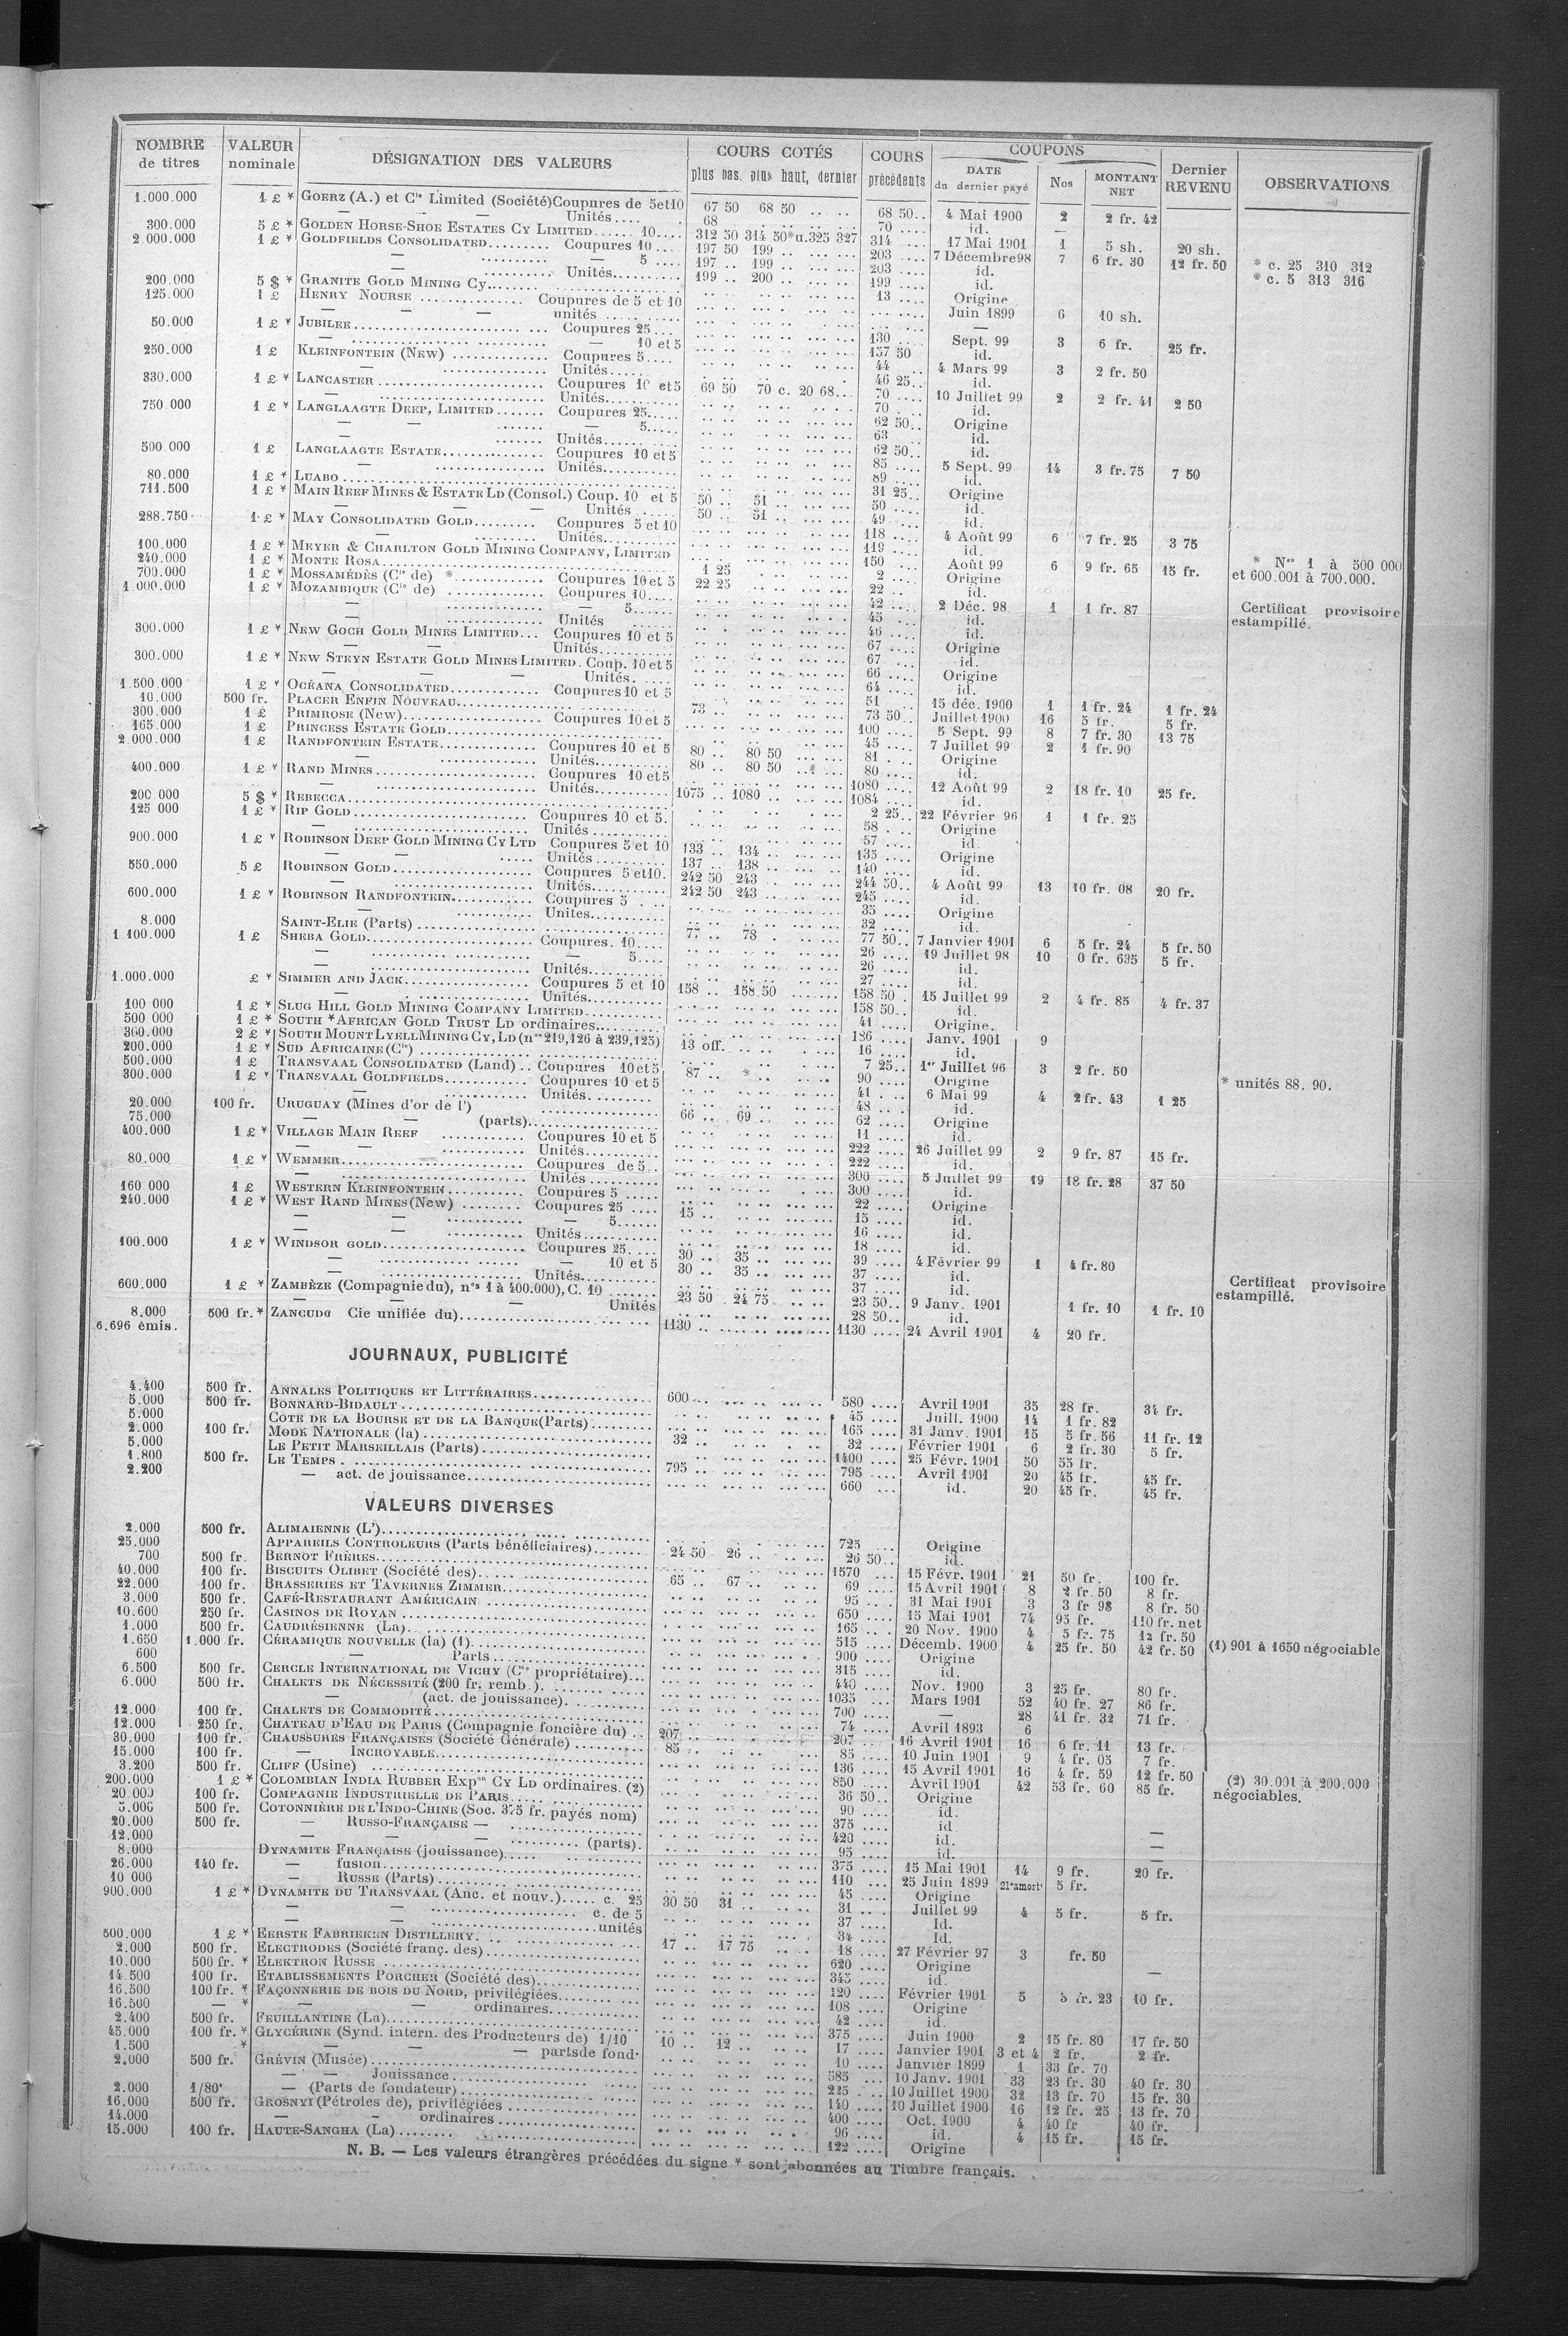 NOMBRE de titres | VALEUR nominale | DÉSIGNATION DES VALEURS | COURS COTÉS plus bas, plus haut, dernier | COURS précédents | COUPONS DATE du dernier payé | Nos | MONTANT NET | Dernier REVENU | OBSERVATIONS
1.000.000 1 £ * GOERZ (A.) et Cie Limited (Société) Coupures de 5 et 10 67 50 68 50 68 50 4 Mai 1900 2 2 fr. 42
— — Unités 68 70 id. —
300.000 5 £ * GOLDEN HORSE-SHOE ESTATES CY LIMITED 10 312 50 314 50 *u. 325 327 314 17 Mai 1901 1 5 sh. 20 sh. * c. 25 310 312
2.000.000 1 £ * GOLDFIELDS CONSOLIDATED Coupures 10 197 50 199 203 7 Décembre 98 7 6 fr. 30 12 fr. 50 * c. 5 313 316
— — 5 197 199 203 id.
— Unités 199 200 199 id.
200.000 5 $ * GRANITE GOLD MINING Cy 13 Origine
125.000 1 £ HENRY NOURSE Coupures de 5 et 10 Juin 1899 6 10 sh.
— — — unités —
50.000 1 £ * JUBILEE Coupures 25 130 Sept. 99 3 6 fr. 25 fr.
— — 10 et 5 157 50 id.
250.000 1 £ KLEINFONTEIN (New) Coupures 5 44 4 Mars 99 3 2 fr. 50
— Unités 46 25 id.
330.000 1 £ * LANCASTER Coupures 10 et 5 69 50 70 c. 20 68 70 10 Juillet 99 2 2 fr. 41 2 50
— Unités 70 id.
750.000 1 £ * LANGLAAGTE DEEP, LIMITED Coupures 25 62 50 Origine
— — — 5 63 id.
— — Unités 62 50 id.
500.000 1 £ LANGLAAGTE ESTATE Coupures 10 et 5 85 5 Sept. 99 14 3 fr. 75 7 50
— Unités 89 id.
80.000 1 £ * LUABO 31 25 Origine
711.500 1 £ * MAIN REEF MINES & ESTATE LD (Consol.) Coup. 10 et 5 50 51 50 id.
— — — Unités 50 51 49 id.
288.750 1 £ * MAY CONSOLIDATED GOLD Coupures 5 et 10 118 4 Août 99 6 7 fr. 25 3 75
— Unités 119 id.
100.000 1 £ * MEYER & CHARLTON GOLD MINING COMPANY, LIMITED 150 Août 99 6 9 fr. 65 15 fr.
240.000 1 £ * MONTE ROSA 1 25 2 Origine
700.000 1 £ * MOSSAMÉDÈS (Cie de) * Coupures 10 et 5 22 25 22 id. * Nos 1 à 500 000 et 600.001 à 700.000.
1.000.000 1 £ * MOZAMBIQUE (Cie de) Coupures 10 42 2 Déc. 98 1 1 fr. 87 Certificat provisoire estampillé.
— — 5 45 id.
— Unités 46 id.
300.000 1 £ * NEW GOCH GOLD MINES LIMITED Coupures 10 et 5 67 Origine
— — Unités 67 id.
300.000 1 £ * NEW STEYN ESTATE GOLD MINES LIMITED. Coup. 10 et 5 66 Origine
— — — Unités 64 id.
1.500.000 1 £ * OCÉANA CONSOLIDATED Coupures 10 et 5 51 15 déc. 1900 1 1 fr. 24 1 fr. 24
10.000 500 fr. PLACER ENFIN NOUVEAU 73 73 50 Juillet 1900 16 5 fr. 5 fr.
300.000 1 £ PRIMROSE (New) Coupures 10 et 5 100 5 Sept. 99 8 7 fr. 30 13 75
165.000 1 £ PRINCESS ESTATE GOLD 45 7 Juillet 99 2 1 fr. 90
2.000.000 1 £ RANDFONTEIN ESTATE Coupures 10 et 5 80 80 50 81 Origine
— Unités 80 80 50 80 id.
400.000 1 £ * RAND MINES Coupures 10 et 5 1080 12 Août 99 2 18 fr. 10 25 fr.
— Unités 1075 1080 1084 id.
200.000 5 $ * REBECCA 2 25 22 Février 96 1 1 fr. 25
125 000 1 £ * RIP GOLD Coupures 10 et 5. 58 Origine
— Unités 57 id.
900.000 1 £ * ROBINSON DEEP GOLD MINING CY LTD Coupures 5 et 10 133 134 135 Origine
— — Unités 137 138 140 id.
550.000 5 £ ROBINSON GOLD Coupures 5 et 10. 242 50 243 244 50 4 Août 99 13 10 fr. 08 20 fr.
— Unités 242 50 243 245 id.
600.000 1 £ * ROBINSON RANDFONTEIN Coupures 5 35 Origine
— Unités 32 id.
8.000 SAINT-ELIE (Parts) 77 78 77 50 7 Janvier 1901 6 5 fr. 24 5 fr. 50
1 100.000 1 £ SHEBA GOLD Coupures. 10 26 19 Juillet 98 10 0 fr. 635 5 fr.
— — 5 26 id.
— Unités 27 id.
1.000.000 £ * SIMMER AND JACK Coupures 5 et 10 158 158 50 158 50 15 Juillet 99 2 4 fr. 85 4 fr. 37
— Unités 158 50 id.
100 000 1 £ * SLUG HILL GOLD MINING COMPANY LIMITED 41 Origine.
500 000 1 £ * SOUTH *AFRICAN GOLD TRUST LD ordinaires 186 Janv. 1901 9
360.000 2 £ * SOUTH MOUNT LYELL MINING CY, LD (nos 219,126 à 239,125) 13 off. 16 id.
200.000 1 £ * SUD AFRICAINE (Cie) 7 25 1er Juillet 96 3 2 fr. 50
500.000 1 £ TRANSVAAL CONSOLIDATED (Land) Coupures 10 et 5 87 * 90 Origine * unités 88. 90.
300.000 1 £ * TRANSVAAL GOLDFIELDS Coupures 10 et 5 41 6 Mai 99 4 2 fr. 43 1 25
— Unités 48 id.
20.000 100 fr. URUGUAY (Mines d'or de l') 66 69 62 Origine
75.000 — — (parts) 11 id.
400.000 1 £ * VILLAGE MAIN REEF Coupures 10 et 5 222 26 Juillet 99 2 9 fr. 87 15 fr.
— — Unités 222 id.
80.000 1 £ * WEMMER Coupures de 5 300 5 Juillet 99 19 18 fr. 28 37 50
— Unités 300 id.
160 000 1 £ WESTERN KLEINFONTEIN Coupures 5 22 Origine
240.000 1 £ * WEST RAND MINES (New) Coupures 25 15 15 id.
— — — 5 16 id.
— — Unités 18 id.
100.000 1 £ * WINDSOR GOLD Coupures 25 30 35 39 4 Février 99 1 4 fr. 80
— — 10 et 5 30 35 37 id.
— Unités 37 id.
600.000 1 £ * ZAMBÈZE (Compagnie du), nos 1 à 400.000), C. 10 23 50 24 75 23 50 9 Janv. 1901 1 fr. 10 1 fr. 10 Certificat provisoire estampillé.
— — — Unités 28 50 id.
8.000 500 fr. * ZANGUDG Cie unifiée du) 1130 1130 24 Avril 1901 4 20 fr.
6.696 émis.
JOURNAUX, PUBLICITÉ
4.400 500 fr. ANNALES POLITIQUES ET LITTÉRAIRES 600 580 Avril 1901 35 28 fr. 34 fr.
5.000 500 fr. BONNARD-BIDAULT 45 Juill. 1900 14 1 fr. 82
5.000 COTE DE LA BOURSE ET DE LA BANQUE (Parts) 165 31 Janv. 1901 15 5 fr. 56 11 fr. 12
2.000 100 fr. MODE NATIONALE (la) 32 32 Février 1901 6 2 fr. 30 5 fr.
5.000 LE PETIT MARSEILLAIS (Parts) 1400 25 Févr. 1901 50 55 fr.
1.800 500 fr. LE TEMPS 795 795 Avril 1901 20 45 fr. 45 fr.
2.200 — act. de jouissance 660 id. 20 45 fr. 45 fr.
VALEURS DIVERSES
2.000 500 fr. ALIMAIENNE (L') 725 Origine
25.000 APPAREILS CONTROLEURS (Parts bénéficiaires) 24 50 26 26 50 id.
700 500 fr. BERNOT FRÈRES 1570 15 Févr. 1901 21 50 fr. 100 fr.
40.000 100 fr. BISCUITS OLIBET (Société des) 65 67 69 15 Avril 1901 8 2 fr. 50 8 fr.
22.000 100 fr. BRASSERIES ET TAVERNES ZIMMER 95 31 Mai 1901 3 3 fr 98 8 fr. 50
3.000 500 fr. CAFÉ-RESTAURANT AMÉRICAIN 650 15 Mai 1901 74 95 fr. 110 fr. net
10.600 250 fr. CASINOS DE ROYAN 165 20 Nov. 1900 4 5 fr. 75 12 fr. 50
1.000 500 fr. CAUDRÉSIENNE (La) 515 Décemb. 1900 4 25 fr. 50 42 fr. 50
1.650 1.000 fr. CÉRAMIQUE NOUVELLE (la) (1) 900 Origine (1) 901 à 1650 négociable
600 — Parts 315 id.
6.500 500 fr. CERCLE INTERNATIONAL DE VICHY (Cie propriétaire) 440 Nov. 1900 3 25 fr. 80 fr.
6.000 500 fr. CHALETS DE NÉCESSITÉ (200 fr. remb.) 1035 Mars 1901 52 40 fr. 27 86 fr.
— (act. de jouissance) 700 — 28 41 fr. 32 71 fr.
12.000 100 fr. CHALETS DE COMMODITÉ 74 Avril 1893 6
12.000 250 fr. CHATEAU D'EAU DE PARIS (Compagnie foncière du) 207 207 16 Avril 1901 16 6 fr. 11 13 fr.
30.000 100 fr. CHAUSSURES FRANÇAISES (Société Générale) 85 85 10 Juin 1901 9 4 fr. 05 7 fr.
15.000 100 fr. — INCROYABLE 136 15 Avril 1901 16 4 fr. 59 12 fr. 50
3.200 500 fr. CLIFF (Usine) 850 Avril 1901 42 53 fr. 60 85 fr.
200.000 1 £ * COLOMBIAN INDIA RUBBER Expon CY LD ordinaires. (2) 36 50 Origine (2) 30.001 à 200.000 négociables.
20.000 100 fr. COMPAGNIE INDUSTRIELLE DE PARIS 90 id.
5.000 500 fr. COTONNIÈRE DE L'INDO-CHINE (Soc. 375 fr. payés nom) 375 id.
20.000 500 fr. — RUSSO-FRANÇAISE — 420 id. —
12.000 — — — (parts). 95 id. —
8.000 DYNAMITE FRANÇAISE (jouissance) 375 15 Mai 1901 14 9 fr. 20 fr.
26.000 140 fr. — fusion 110 25 Juin 1899 21e amort 5 fr.
10 000 — RUSSE (Parts) 45 Origine
900.000 1 £ * DYNAMITE DU TRANSVAAL (Anc. et nouv.) c. 25 30 50 31 31 Juillet 99 4 5 fr. 5 fr.
— — c. de 5 37 Id.
— — unités 34 Id.
500.000 1 £ * EERSTE FABRIEKEN DISTILLERY 17 17 75 18 27 Février 97 3 fr. 50
2.000 500 fr. ELECTRODES (Société franç. des) 620 Origine
10.000 500 fr. * ELEKTRON RUSSE 345 id. —
14.500 100 fr. ETABLISSEMENTS PORCHER (Société des) 120 Février 1901 5 5 fr. 23 10 fr.
16.500 100 fr. * FAÇONNERIE DE BOIS DU NORD, privilégiées 108 Origine
16.500 — * — — ordinaires 42 id.
2.400 500 fr. FEUILLANTINE (La) 375 Juin 1900 2 15 fr. 80 17 fr. 50
45.000 100 fr. * GLYCÉRINE (Synd. intern. des Producteurs de) 1/10 10 12 17 Janvier 1901 3 et 4 2 fr. 2 fr.
1.500 * — — — parts de fond. 10 Janvier 1899 1 33 fr. 70
2.000 500 fr. GRÉVIN (Musée) 585 10 Janv. 1901 33 23 fr. 30 40 fr. 30
— — Jouissance 225 10 Juillet 1900 32 13 fr. 70 15 fr. 30
2.000 1/80e — (Parts de fondateur) 140 10 Juillet 1900 16 12 fr. 25 13 fr. 70
16.000 500 fr. GROSNYI (Pétroles de), privilégiées 400 Oct. 1900 4 40 fr 40 fr.
14.000 — — ordinaires 96 id. 4 15 fr. 15 fr.
15.000 100 fr. HAUTE-SANGHA (La) 122 Origine
N. B. — Les valeurs étrangères précédées du signe * sont abonnées au Timbre français.